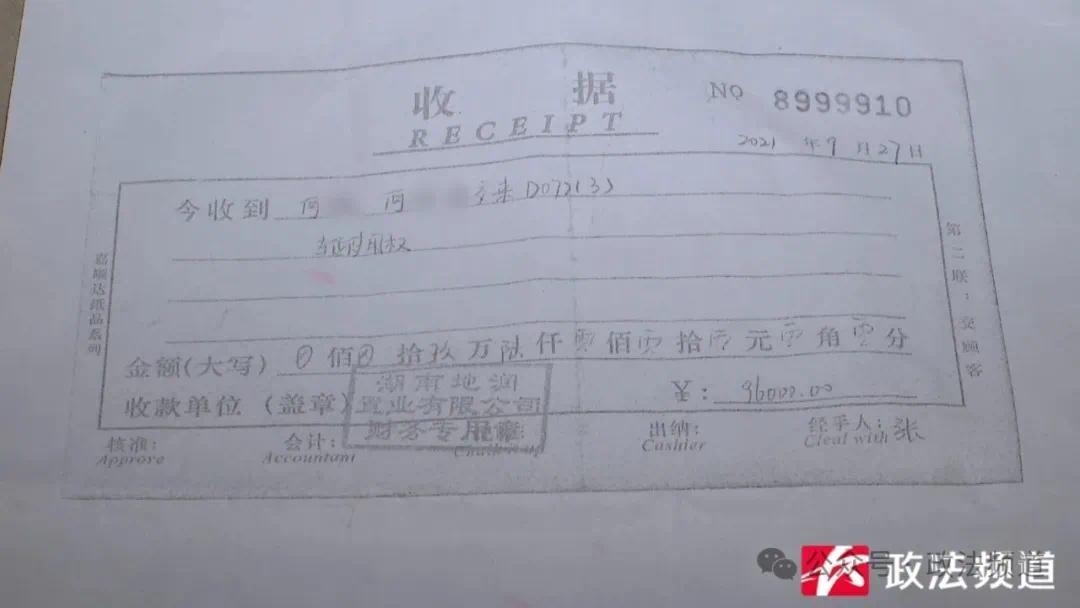 收 据
RECEIPT
NO 8999910
2021 年 9 月 27 日
今收到 何 何 交来 D072(3)
车位使用权
金额(大写) 0 佰 0 拾 玖 万 陆 仟 零 佰 零 拾 零 元 零 角 零 分
¥: 96000.00
收款单位 (盖章)
湖南地润
置业有限公司
财务专用章
核准:
Approve
会计:
Accountant
出纳:
Cashier
经手人: 张
Cleal with
嘉顺达纸品系列
第二联:交顾客
公众号 政法频道
政法频道